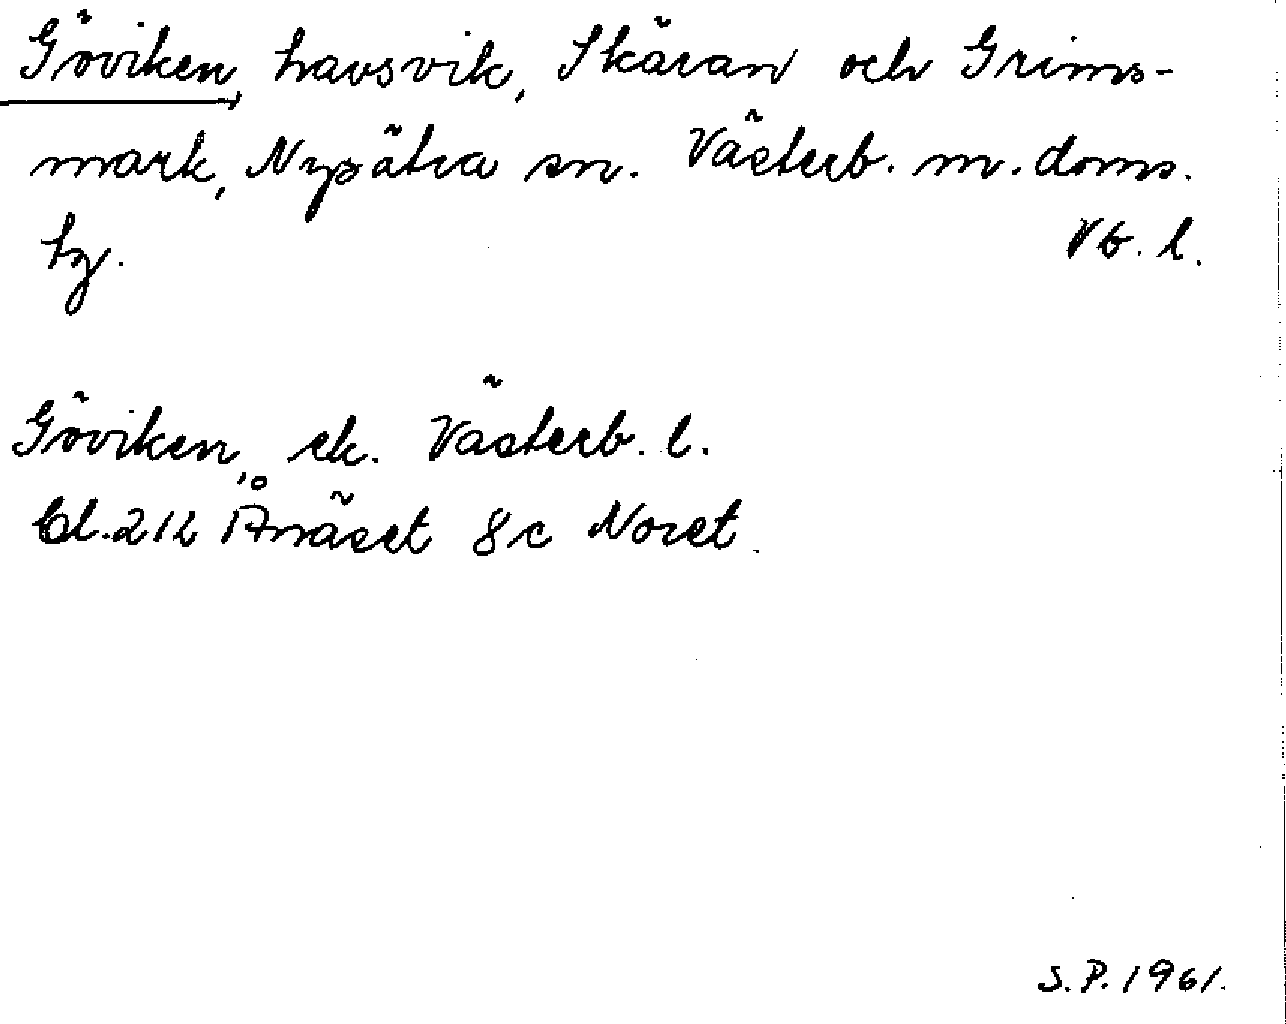 Göviken, havsvik, Skäran och Grims-
mark, Nysätra sn. Västerb. m. doms.
hg. Vb. l.
Göviken, ek. Västerb. l.
bl. 212 Ånäset 8c Noret.
S.P. 1961.